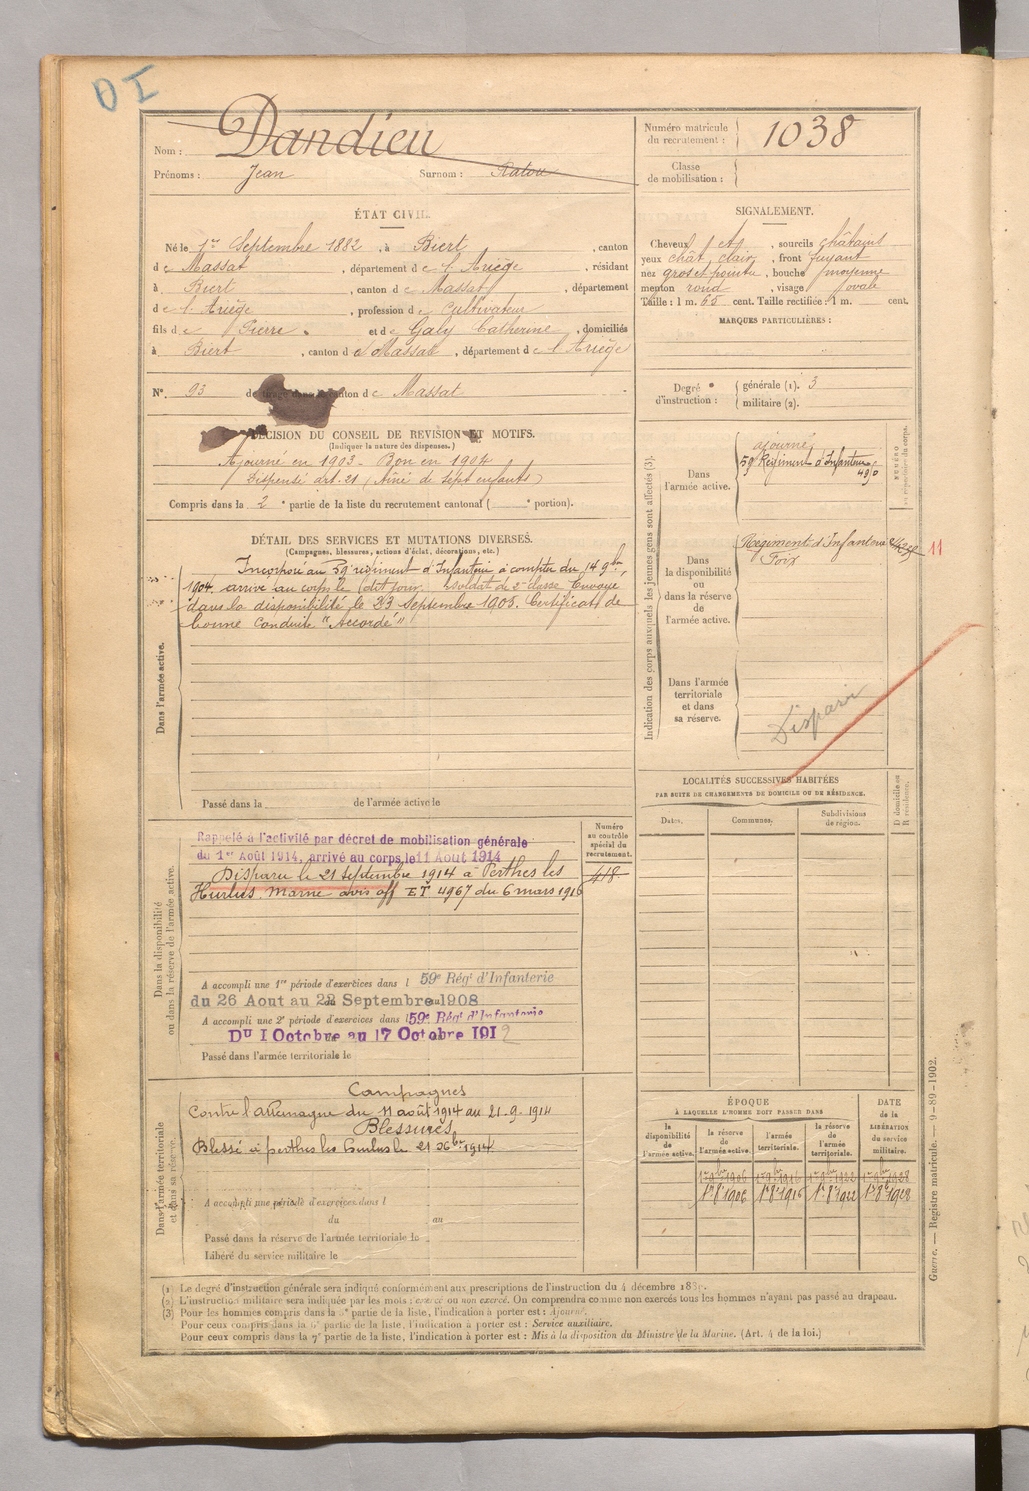 DI
Nom : Dandieu
Prénoms : Jean Surnom : Ratou
Numéro matricule du recrutement : 1038
Classe de mobilisation :
ÉTAT CIVIL.
Né le 1er Septembre 1882, à Biert, canton
de Massat, département de l'Ariège, résidant
à Biert, canton de Massat, département
de l'Ariège, profession de Cultivateur
fils de Pierre et de Galy Catherine, domiciliés
à Biert, canton de Massat, département de l'Ariège
N° 93 de tirage dans le canton de Massat
SIGNALEMENT.
Cheveux chât, sourcils châtains
yeux chât clair, front fuyant
nez gros et pointu, bouche moyenne
menton rond, visage ovale
Taille : 1 m. 65 cent. Taille rectifiée : 1 m. cent.
MARQUES PARTICULIÈRES :
Degré d'instruction : générale (1). 3
militaire (2).
DÉCISION DU CONSEIL DE REVISION ET MOTIFS.
(Indiquer la nature des dispenses.)
Ajourné en 1903 - Bon en 1904
Dispensé art. 21 (Aîné de sept enfants)
Compris dans la 2e partie de la liste du recrutement cantonal ( e portion).
DÉTAIL DES SERVICES ET MUTATIONS DIVERSES.
(Campagnes, blessures, actions d'éclat, décorations, etc.)
Dans l'armée active.
Incorporé au 59e régiment d'Infanterie à compter du 14 9bre,
1904, arrivé au corps le dit jour, soldat de 2e classe. Envoyé
dans la disponibilité le 23 Septembre 1905. Certificat de
bonne conduite "Accordé"
Passé dans la de l'armée active le
Indication des corps auxquels les jeunes gens sont affectés (3).
NUMÉRO au répertoire du corps.
Dans l'armée active.
ajourné
59e Régiment d'Infanterie
Dans la disponibilité ou dans la réserve de l'armée active.
Régiment d'Infanterie
Foix
11
Dans l'armée territoriale et dans sa réserve.
Disparu
LOCALITÉS SUCCESSIVES HABITÉES
PAR SUITE DE CHANGEMENTS DE DOMICILE OU DE RÉSIDENCE.
D domicile ou R résidence.
Dates. Communes. Subdivisions de région.
Dans la disponibilité ou dans la réserve de l'armée active.
Numéro au contrôle spécial du recrutement.
418
Rappelé à l'activité par décret de mobilisation générale
du 1er Août 1914, arrivé au corps le 11 Aout 1914
Disparu le 21 septembre 1914 à Perthes les
Hurlus, Marne avis off ET 4967 du 6 mars 1916
A accompli une 1re période d'exercices dans l 59e Régt d'Infanterie
du 26 Aout au 22 Septembre 1908
A accompli une 2e période d'exercices dans l 59e Régt d'Infanterie
Du 1 Octobre au 17 Octobre 1912
Passé dans l'armée territoriale le
Dans l'armée territoriale et dans sa réserve.
Campagnes
Contre l'allemagne du 11 août 1914 au 21.9.1914
Blessures
Blessé à perthes les hurlus le 21 1914
A accompli une période d'exercices dans l
du au
Passé dans la réserve de l'armée territoriale le
Libéré du service militaire le
ÉPOQUE
À LAQUELLE L'HOMME DOIT PASSER DANS
DATE de la LIBÉRATION du service militaire.
la disponibilité de l'armée active. la réserve de l'armée active. l'armée territoriale. la réserve de l'armée territoriale.
1er 9bre 1906 1er 9bre 1916 1er 9bre 1922 1er 9bre 1928
1er 8e 1906 1er 8e 1916 1er 8e 1922 1er 8e 1928
(1) Le degré d'instruction générale sera indiqué conformément aux prescriptions de l'instruction du 4 décembre
(2) L'instruction militaire sera indiquée par les mots : exercé ou non exercé. On comprendra comme non exercés tous les hommes n'ayant pas passé au drapeau.
(3) Pour les hommes compris dans la partie de la liste, l'indication à porter est : Ajourné.
Pour ceux compris dans la partie de la liste, l'indication à porter est : Service auxiliaire.
Pour ceux compris dans la 7e partie de la liste, l'indication à porter est : Mis à la disposition du Ministre de la Marine. (Art. 4 de la loi.)
Guerre. — Registre matricule. — 9-89-1902.